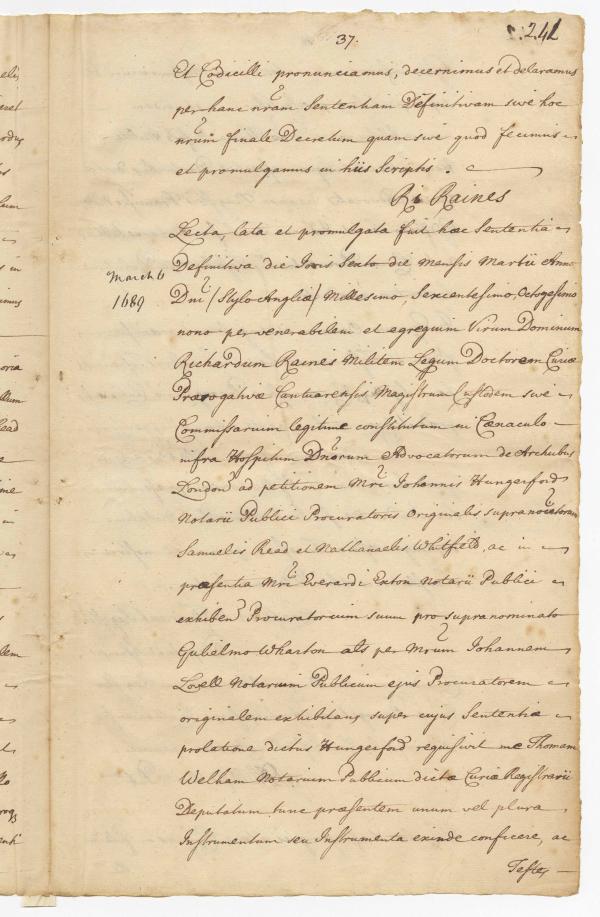 37.
241
Et Codicilli pronunciamus, decernimus et delaramus
per hanc nram Sententiam Definitivam sive hoc
nrum finale Decretum quam sive quod fecimus
et promulgamus in hiis Scriptis.
Ri Raines
Lecta, lata et promulgata fuit hæc Sententia
Definitiva die Jovis Sexto die Mensis Martii Anno
March 6
1689
Dni (Stylo Angliæ) Millesimo, Sexcentesimo, Octogesimo
nono per venerabilem et egregium Virum Dominum
Richardum Raines Militem Legum Doctorem Curiæ
Prærogativæ Cantuarensis Magistrum Custodem sive
Commissarium legitime constitutum in Cænaculo
infra Hospitium Dnorum Advocatorum de Archubus
London ad petitionem Mri Johannis Hungerford
Notarii Publici Procuratoris Originalis supranoiatorum
Samuelis Read et Nathanaelis Whitfeld, ac in
præsentia Mri Everardi Exton Notarii Publici
exhiben Procuratorium suum pro supranominato
Gulielmo Wharton als per Mrum Johannem
Lovell Notarium Publicum ejus Procuratorem
originalem exhibitang super cujus Sententiæ
prolatione dictus Hungerford requisivit me Thomam
Welham Notarium Publicum dictæ Curiæ Registrarii
Deputatum tunc præsentem unum vel plura
Instrumentum seu Instrumenta exinde conficere, ac
Testes